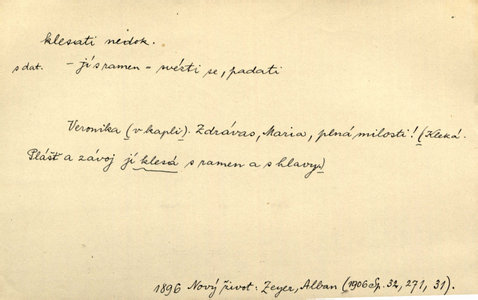 klesati nedok.
s dat. – jí s ramen = svézti se, padati
Veronika (v kapli). Zdrávas, Maria, plná milosti! (Kleká.
Plášť a závoj jí klesá s ramen a s hlavy.)
1896 Nový život: Zeyer, Alban (1906 Sp. 32, 271, 31)